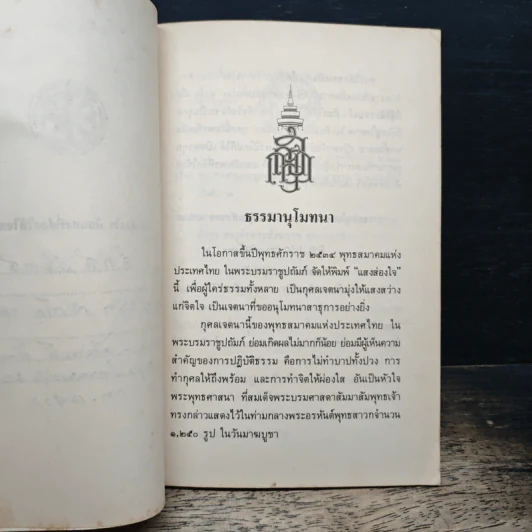 ธรรมานุโมทนา
ในโอกาสขึ้นปีพุทธศักราช ๒๕๓๔ พุทธสมาคมแห่ง
ประเทศไทย ในพระบรมราชูปถัมภ์ จัดให้พิมพ์ “แสงส่องใจ”
นี้ เพื่อผู้ใคร่ธรรมทั้งหลาย เป็นกุศลเจตนามุ่งให้แสงสว่าง
แก่จิตใจ เป็นเจตนาที่ขออนุโมทนาสาธุการอย่างยิ่ง
กุศลเจตนานี้ของพุทธสมาคมแห่งประเทศไทย ใน
พระบรมราชูปถัมภ์ ย่อมเกิดผลไม่มากก็น้อย ย่อมมีผู้เห็นความ
สำคัญของการปฏิบัติธรรม คือการไม่ทำบาปทั้งปวง การ
ทำกุศลให้ถึงพร้อม และการทำจิตให้ผ่องใส อันเป็นหัวใจ
พระพุทธศาสนา ที่สมเด็จพระบรมศาสดาสัมมาสัมพุทธเจ้า
ทรงกล่าวแสดงไว้ในท่ามกลางพระอรหันต์พุทธสาวกจำนวน
๑,๒๕๐ รูป ในวันมาฆบูชา